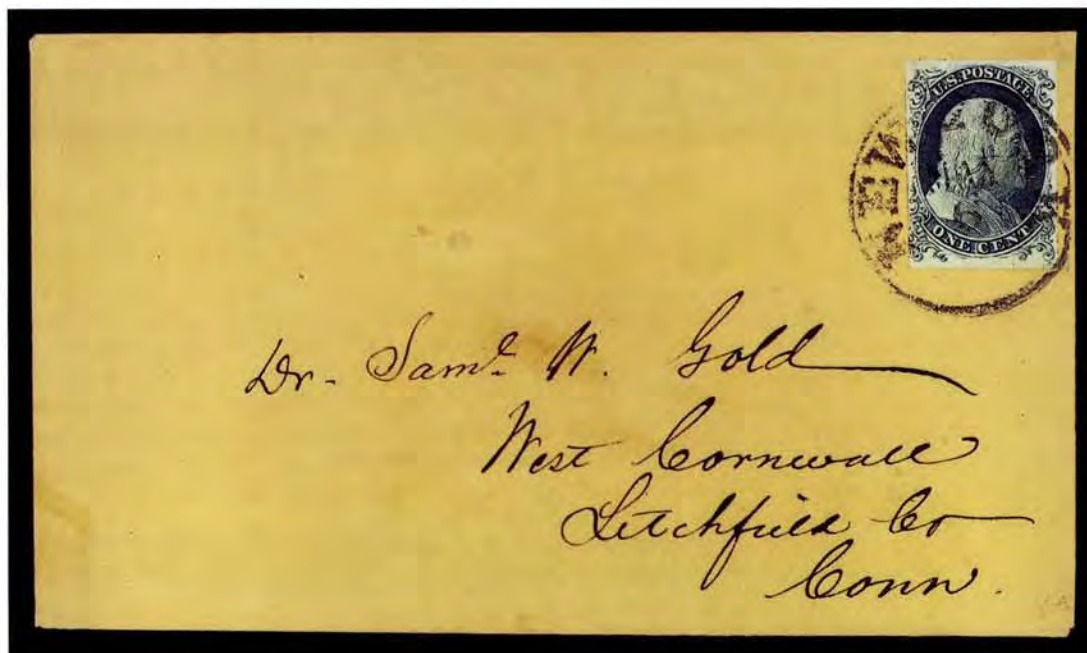 U.S. POSTAGE
ONE CENT
NEW
Dr. Saml. W. Gold
West Cornwall
Litchfield Co
Conn.